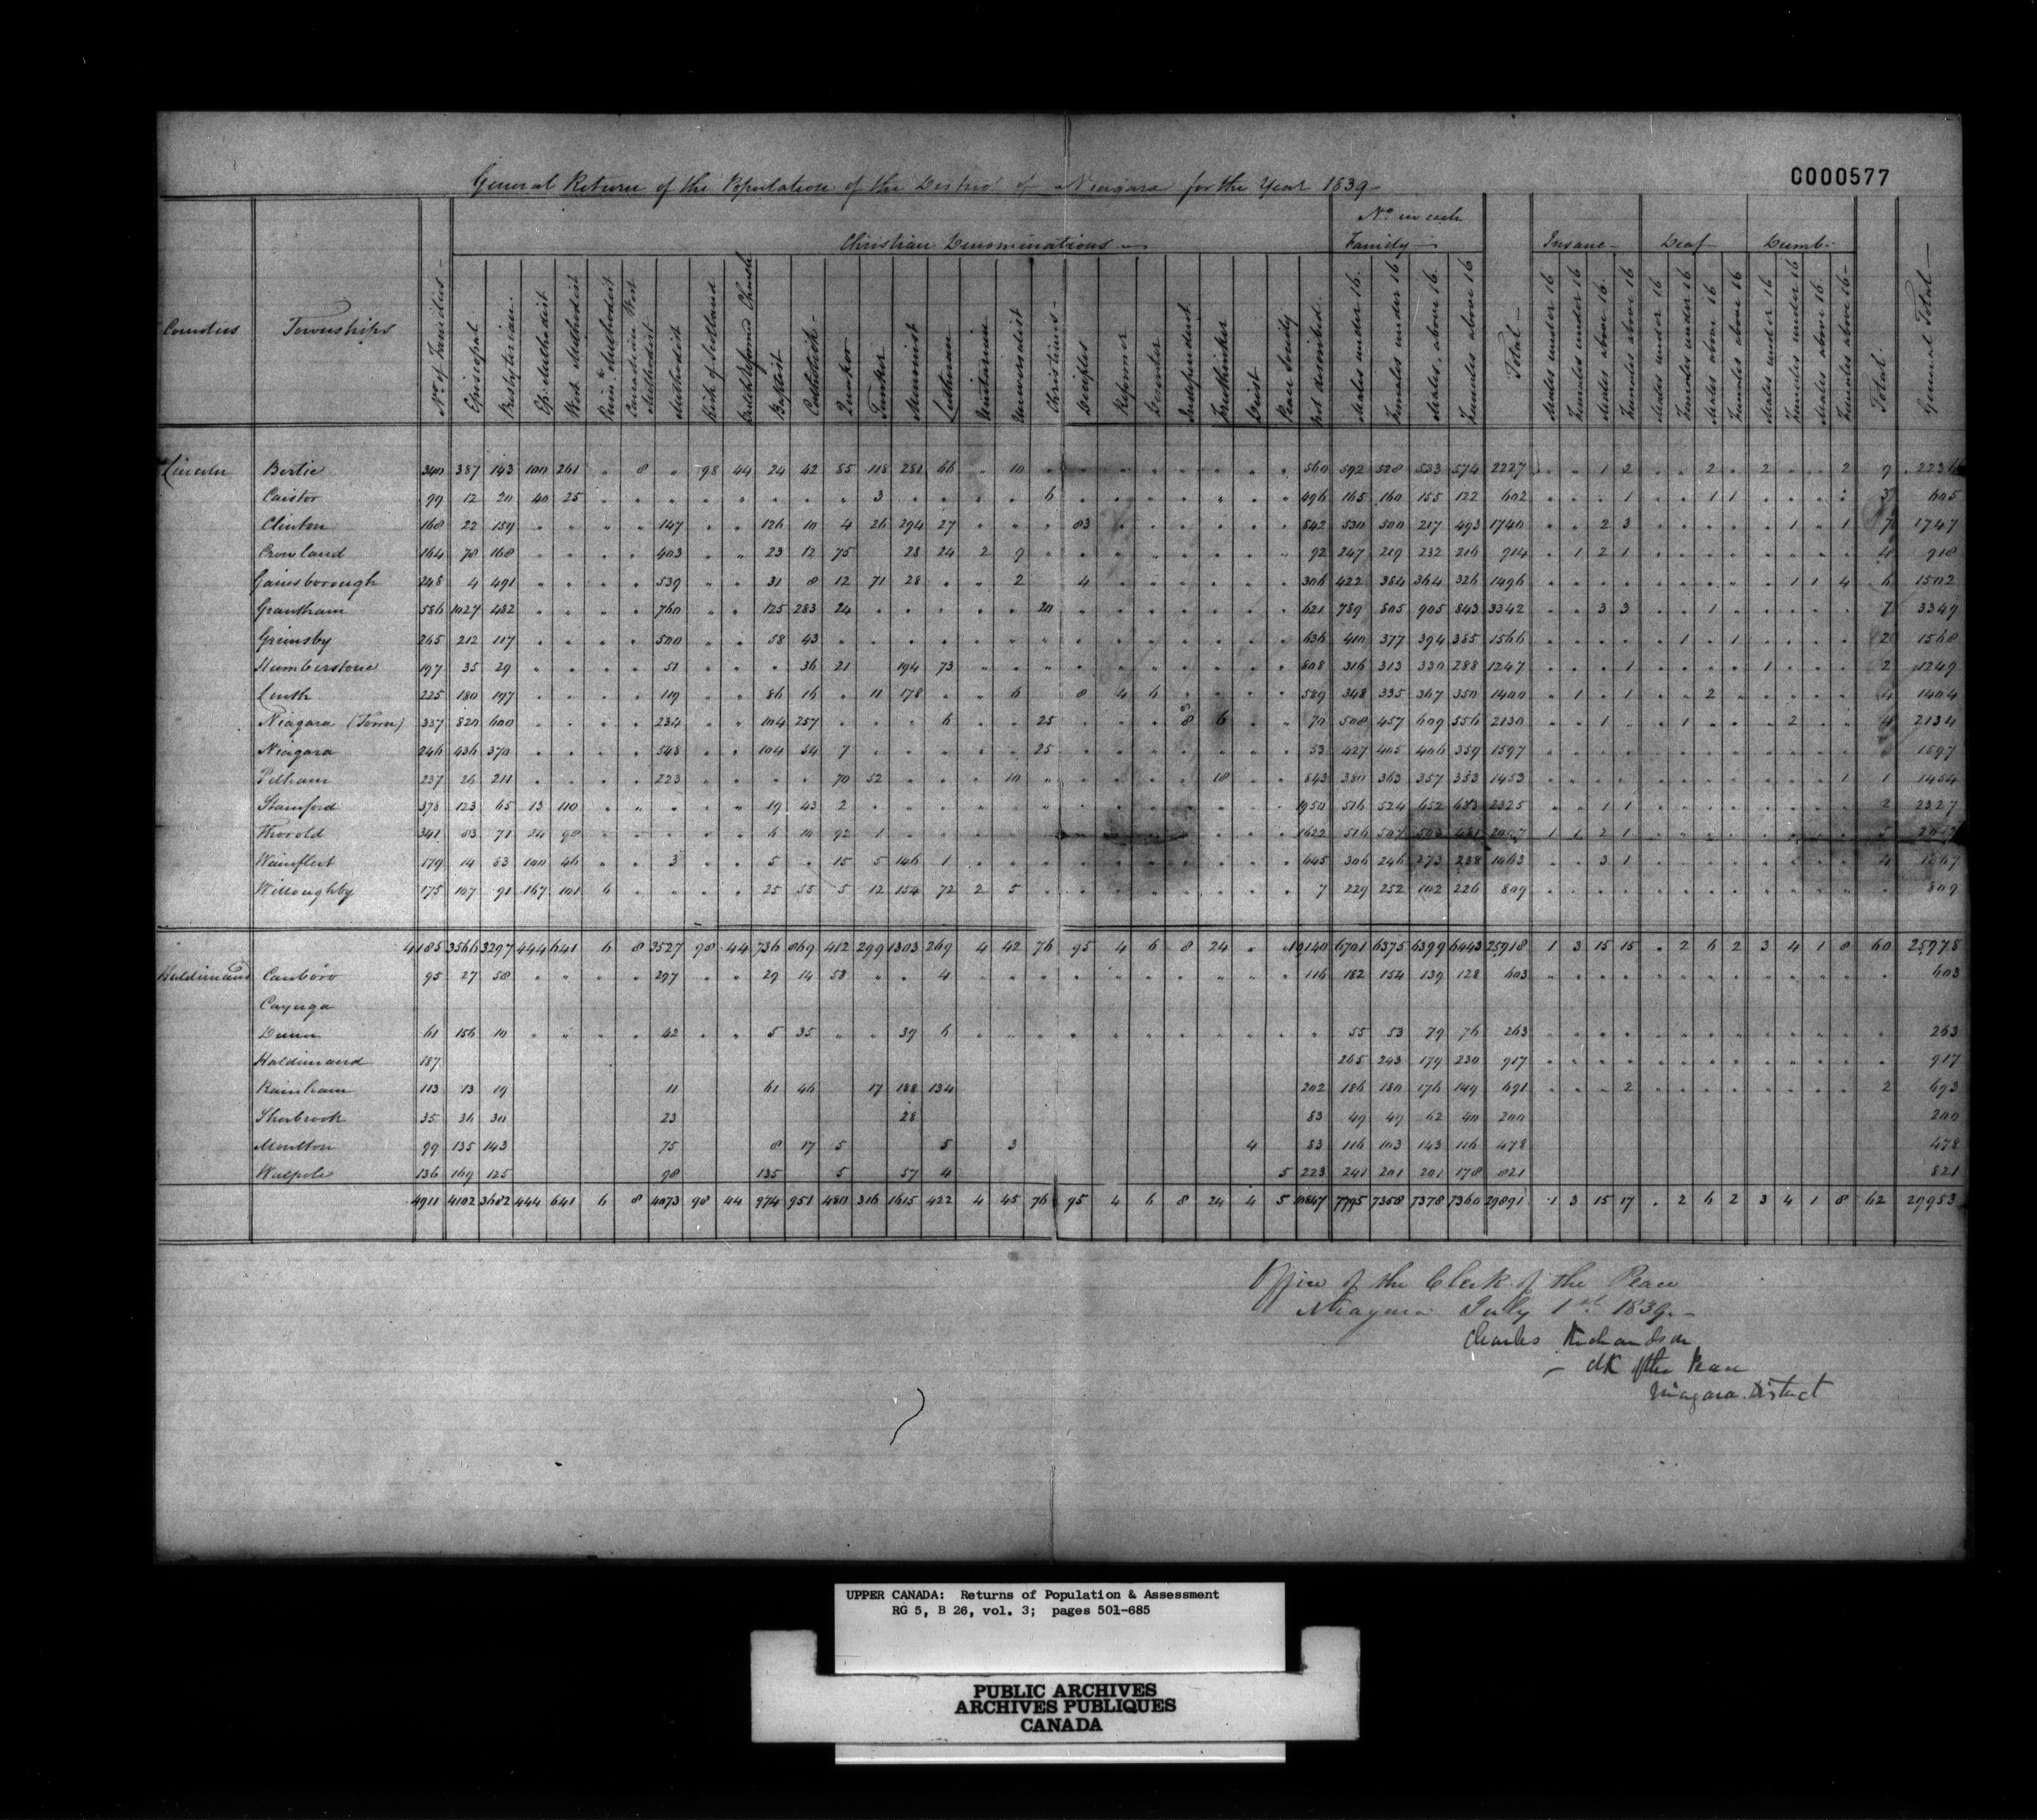 C000577
General Return of the Population of the District of Niagara for the Year 1839
Counties Townships No. of Families Christian Denominations No. in each Family Total Insane Deaf Dumb Total General Total
Episcopal Presbyterian Ep. Methodist Wes. Methodist Prim. Methodist Canadian Wes. Methodist Methodist Kirk of Scotland Dutch Reformed Church Baptist Catholick Quaker Tunker Menonist Lutheran Unitarian Universalist Christians Deciples Reformer Independent Freethinker Deist Peace Society Not described Males under 16 Females under 16 Males above 16 Females above 16 Males under 16 Females under 16 Males above 16 Females above 16 Males under 16 Females under 16 Males above 16 Females above 16 Males under 16 Females under 16 Males above 16 Females above 16
Lincoln Bertie 340 387 143 100 261 " 8 " 98 44 24 42 85 118 281 66 " 10 560 592 528 533 574 2227 1 2 2 2 2 9 2236
Caistor 99 12 20 40 25 3 6 496 165 160 155 122 602 1 1 1 3 605
Clinton 168 22 159 147 126 10 4 26 294 27 83 842 530 500 217 493 1740 2 3 1 1 7 1747
Crowland 164 78 168 403 23 12 75 28 24 2 9 92 247 219 232 216 914 1 2 1 4 918
Gainsborough 248 4 491 539 31 8 12 71 28 2 4 306 422 384 364 326 1496 1 1 4 6 1502
Grantham 586 1027 482 760 125 283 24 20 621 789 805 905 843 3342 3 3 1 7 3349
Grimsby 265 212 117 500 58 43 636 410 377 394 385 1566 1 1 2 1568
Humberstone 197 35 29 51 36 21 194 73 808 316 313 330 288 1247 1 1 2 1249
Louth 225 180 197 119 86 16 11 178 6 8 4 6 589 348 335 367 350 1400 1 1 2 4 1404
Niagara (Town) 337 820 600 234 104 257 6 25 8 6 70 508 457 609 556 2130 1 1 2 4 2134
Niagara 246 436 370 548 104 54 7 25 53 427 405 406 359 1597 1597
Pelham 237 26 211 223 70 52 10 18 843 380 363 357 353 1453 1 1 1454
Stamford 378 123 65 13 110 19 43 2 1950 516 524 652 633 2325 1 1 2 2327
Thorold 341 53 71 24 98 6 10 92 1 1622 516 507 1 1 2 1 5
Wainfleet 179 14 53 100 46 3 5 15 5 146 1 645 306 246 273 238 1063 3 1 4 1067
Willoughby 175 107 91 167 101 6 25 55 5 12 154 72 2 5 7 229 252 102 226 809 809
4185 3566 3297 444 641 6 8 3527 98 44 736 869 412 299 1303 269 4 42 76 95 4 6 8 24 10140 6701 6375 6399 6443 25918 1 3 15 15 2 6 2 3 4 1 8 60 25978
Haldimand Canboro 95 27 58 297 29 14 58 4 116 182 154 139 128 603 603
Cayuga
Dunn 61 156 10 42 5 35 39 6 55 53 79 76 263 263
Haldimand 187 265 243 179 230 917 917
Rainham 113 13 19 11 61 46 17 188 134 202 186 180 176 149 691 2 2 693
Sherbrook 35 36 30 23 28 83 49 49 62 40 200 200
Moulton 99 135 143 75 8 17 5 5 3 4 83 116 103 143 116 478 478
Walpole 136 169 125 98 135 5 57 4 5 223 241 201 201 178 821 821
4911 4102 3682 444 641 6 8 4073 98 44 974 951 480 316 1615 422 4 45 76 95 4 6 8 24 4 5 10847 7795 7358 7378 7360 29891 1 3 15 17 2 6 2 3 4 1 8 62 29953
Office of the Clerk of the Peace
Niagara July 1st 1839
Charles Richardson
Clk of the Peace
Niagara District
UPPER CANADA: Returns of Population & Assessment
RG 5, B 26, vol. 3; pages 501-685
PUBLIC ARCHIVES
ARCHIVES PUBLIQUES
CANADA